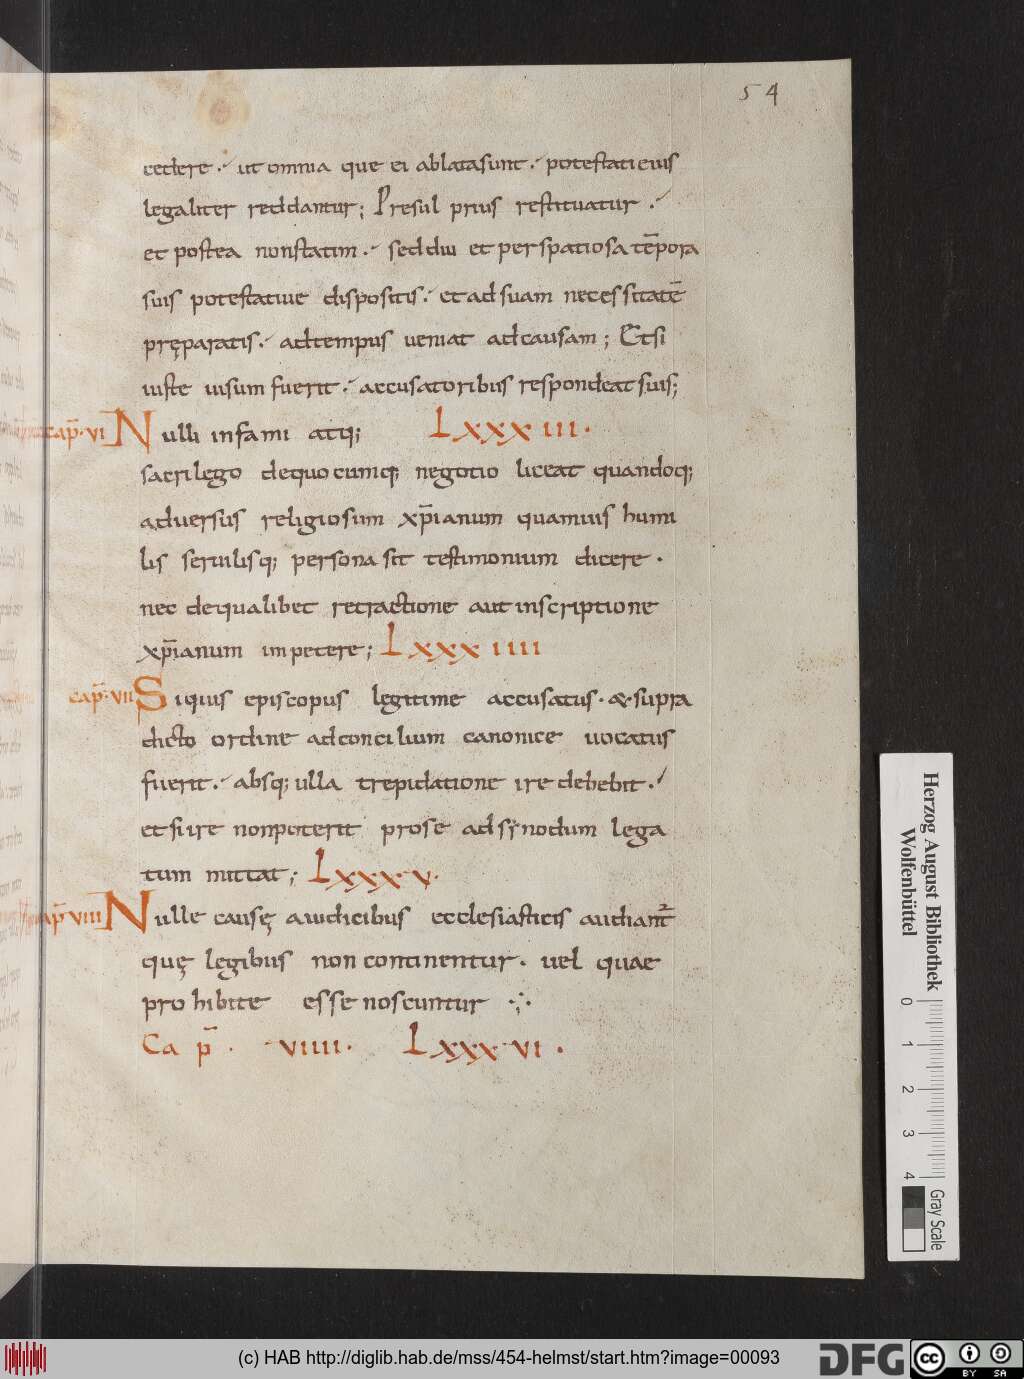 54
cedere. ut omnia que ei ablata sunt. potestati eius
legaliter reddantur; Presul prius restituatur.
et postea non statim. sed diu et per spatiosa tēpora
suis potestative dispositis. et ad suam necessitatē
pręparatis. ad tempus veniat ad causam; Et si
iuste uisum fuerit. accusatoribus respondeat suis;
cap̄. VI Nulli infami atq; LXXXIII.
sacrilego de quocumq; negotio liceat quandoq;
adversus religiosum xp̄ianum quamvis humi
lis seruilisq; persona sit testimonium dicere.
nec de qualibet retractione aut inscriptione
xp̄ianum impetere; LXXXIIII
cap̄. VII Siquis episcopus legitime accusatus. & supra
dicto ordine ad concilium canonice uocatus
fuerit. absq; ulla trepidatione ire debebit.
et si ire non poterit pro se ad synodum lega
tum mittat; LXXXV.
cap̄ VIII Nulle causę a iudicibus ecclesiasticis audiant̄
quę legibus non continentur. vel quae
prohibite esse noscuntur
Cap̄. VIIII. LXXXVI.
Herzog August Bibliothek
Wolfenbüttel
0 1 2 3 4
Gray Scale
(c) HAB http://diglib.hab.de/mss/454-helmst/start.htm?image=00093
DFG
cc BY SA